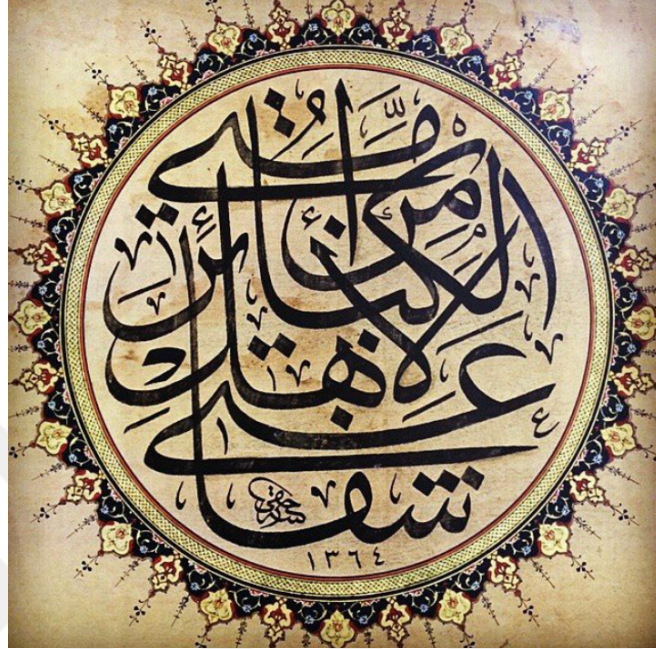 شفاعتي لاهل الكبائر من امتي
١٣٦٤